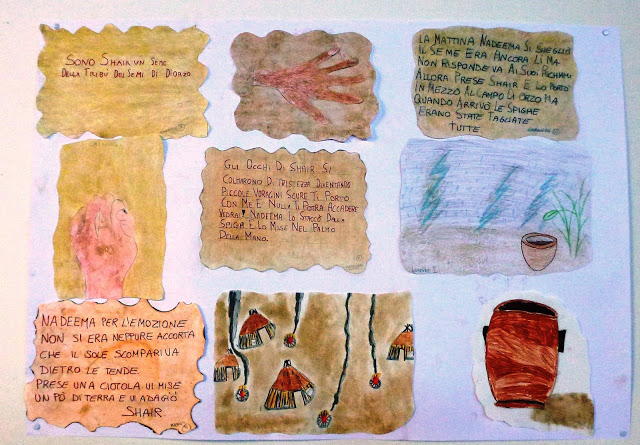 SONO SHAIR UN SEME
DELLA TRIBÙ DEI SEMI DI D'ORZO
LA MATTINA NADEEMA SI SVEGLIO
IL SEME ERA ANCORA LI MA
NON RISPONDE VA AI SUOI RICHIAMI
ALLORA PRESE SHAIR E LO PORTO
IN MEZZO AL CAMPO DI ORZO MA
QUANDO ARRIVÒ LE SPIGHE
ERANO STATE TAGLIATE
TUTTE
GLI OCCHI DI SHAIR SI
COLMARONO DI TRISTEZZA DIVENTANDO
PICCOLE VORAGINI SCURE TI PORTO
CON ME E NULLA TI POTRÀ ACCADERE
VEDRAI! NADEEMA LO STACCÒ DALLA
SPIGA E LO MISE NEL PALMO
DELLA MANO.
NADEEMA PER L'EMOZIONE
NON SI ERA NEPPURE ACCORTA
CHE IL SOLE SCOMPARIVA
DIETRO LE TENDE.
PRESE UNA CIOTOLA VI MISE
UN PÒ DI TERRA E VI ADAGIÒ
SHAIR